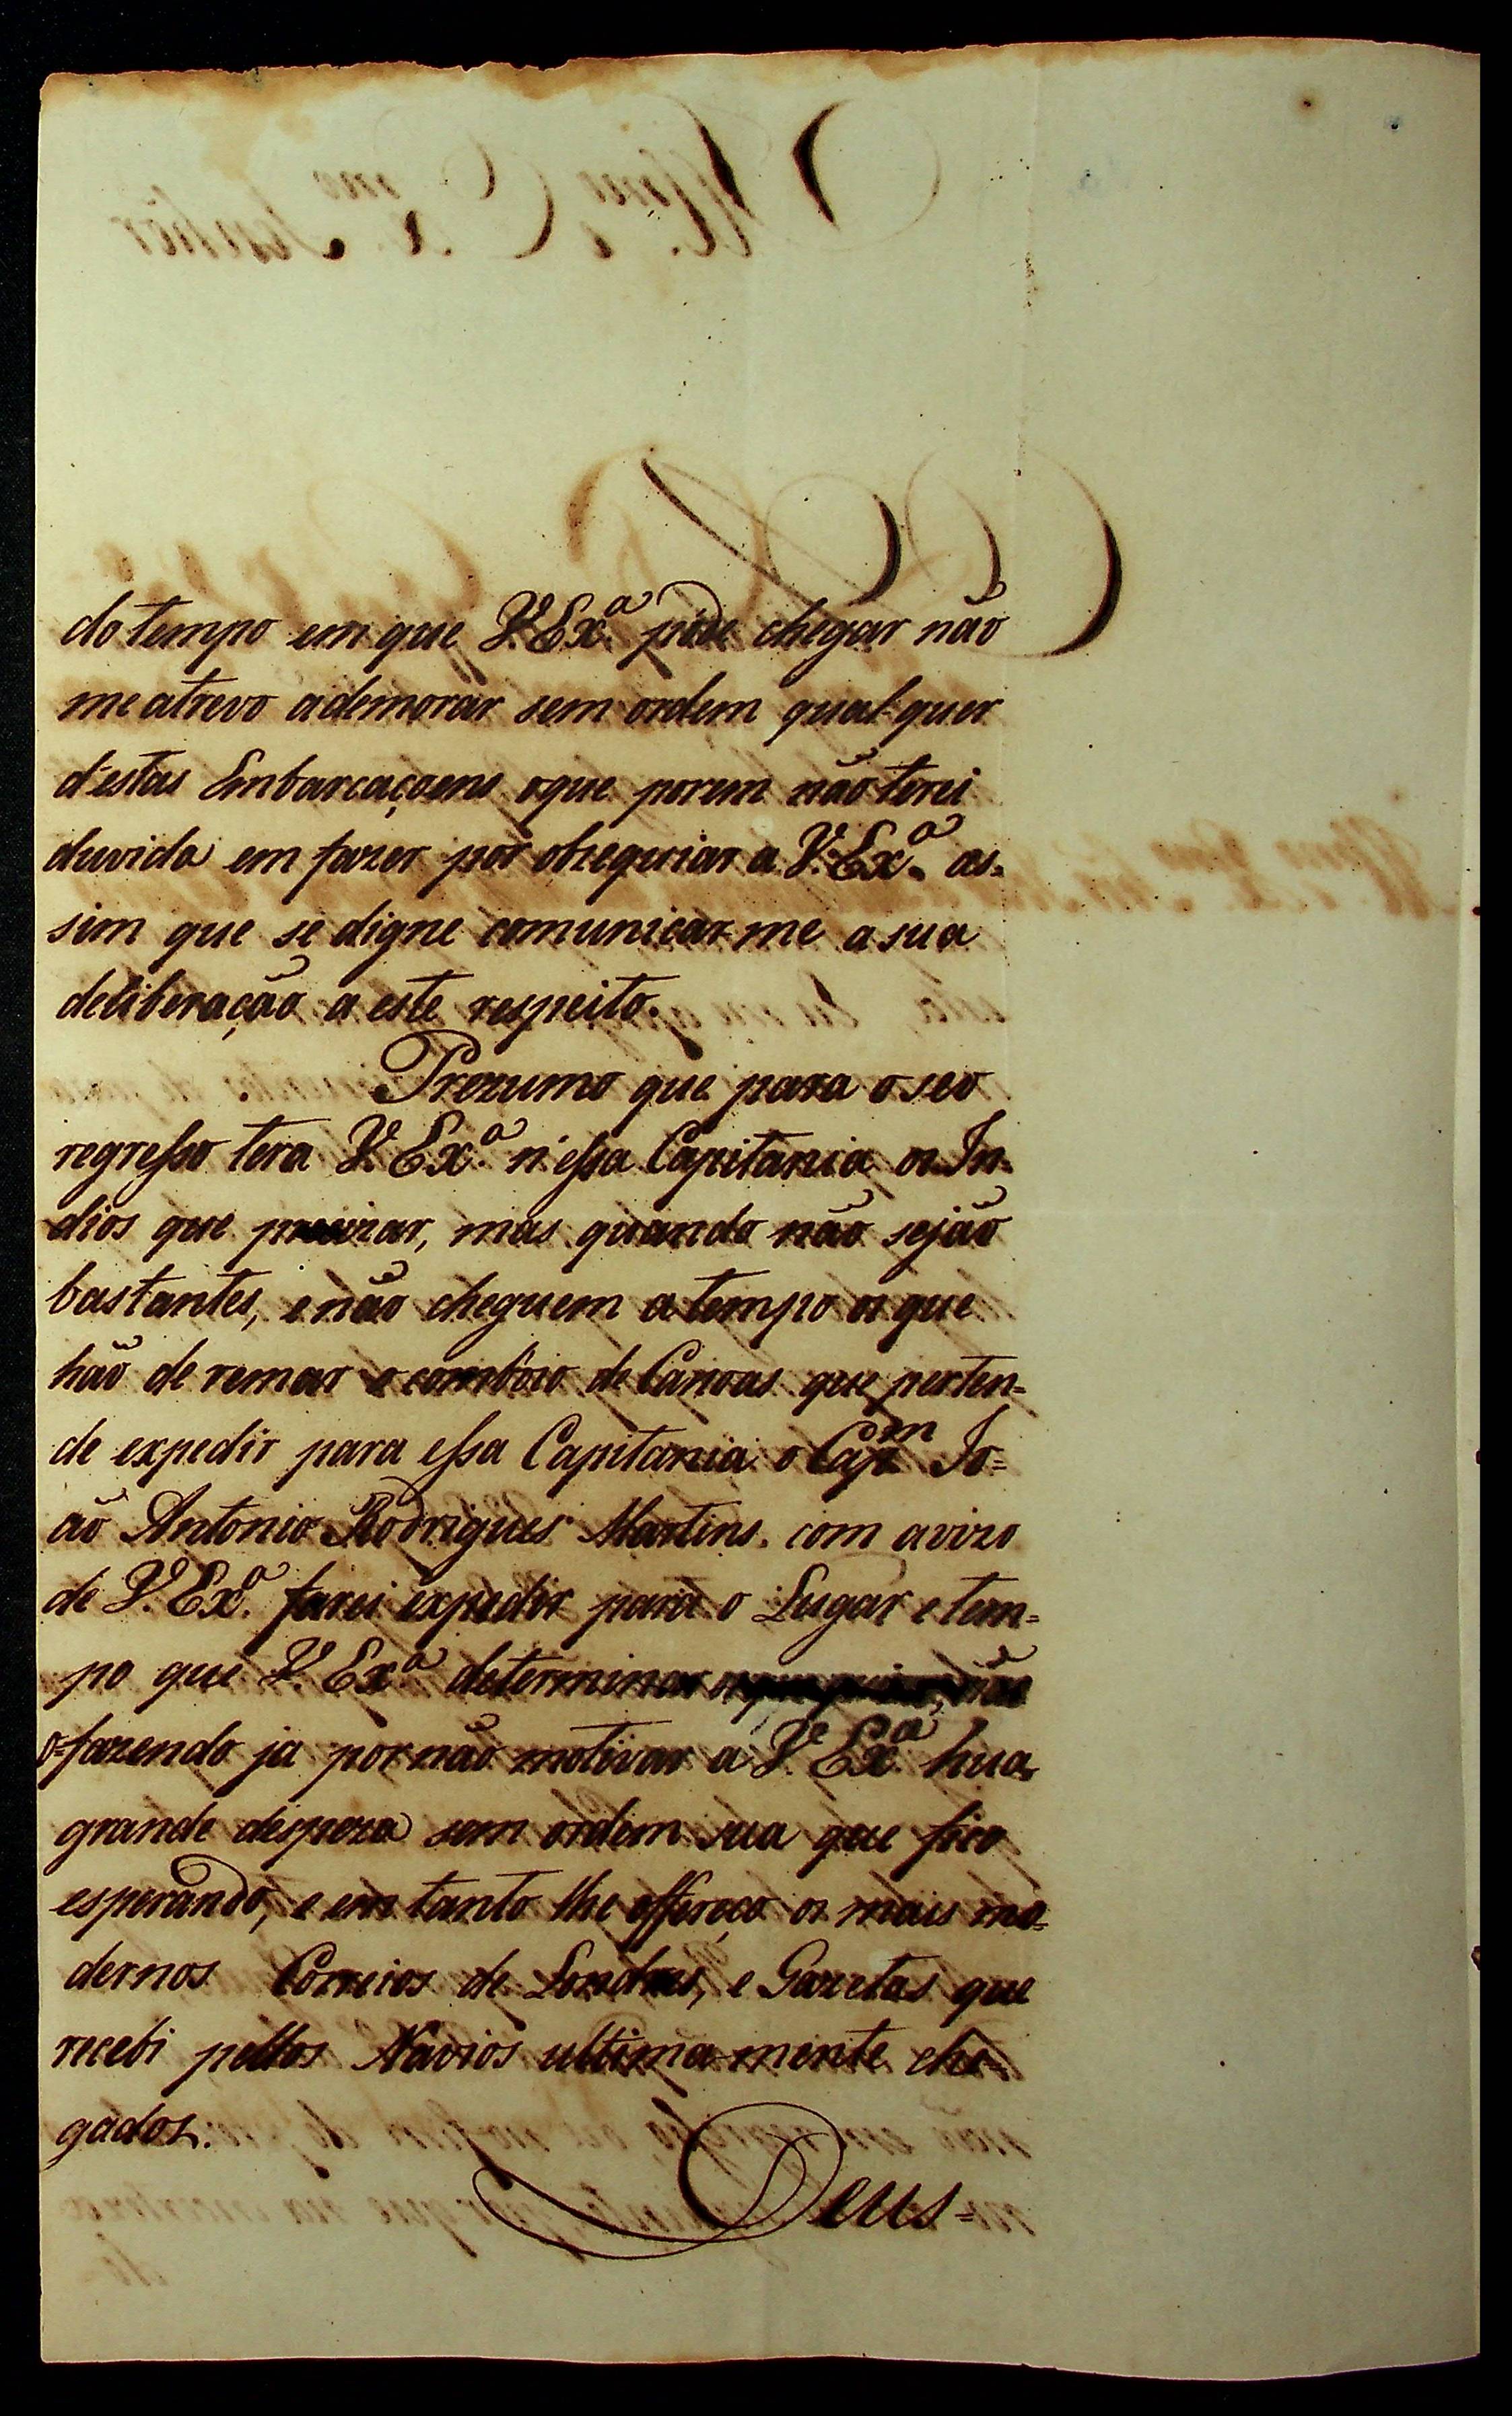 do tempo em que V. Ex.ª póde chegar não
me atrevo a demorar sem ordem qual-quer
d'estas Embarcaçoens o que porem não terei
duvida em fazer por obzequiar a V. Ex.ª as-
sim que se digne comunicar-me a sua
deliberação a este respeito.
Prezumo que para o seo
regresso tera V. Ex.ª n'essa Capitania os In-
dios que precizar, mas quando não sejão
bastantes, e não cheguem a tempo os que
hão de remar o comboio de Canoas que perten-
de expedir para essa Capitania o Cap.m Jo-
ão Antonio Rodrigues Martins, com avizo
de V. Ex.ª farei expedir para o Lugar e tem-
po que V. Ex.ª determinar os que não
o-fazendo ja por não motivar a V. Ex.ª hua
grande despeza sem ordem sua que fico
esperando, e em tanto lhe offereço os mais mo-
dernos Correios de Londres, e Gazetas que
recebi pellos Navios ultima-mente che-
gados.
Deus-